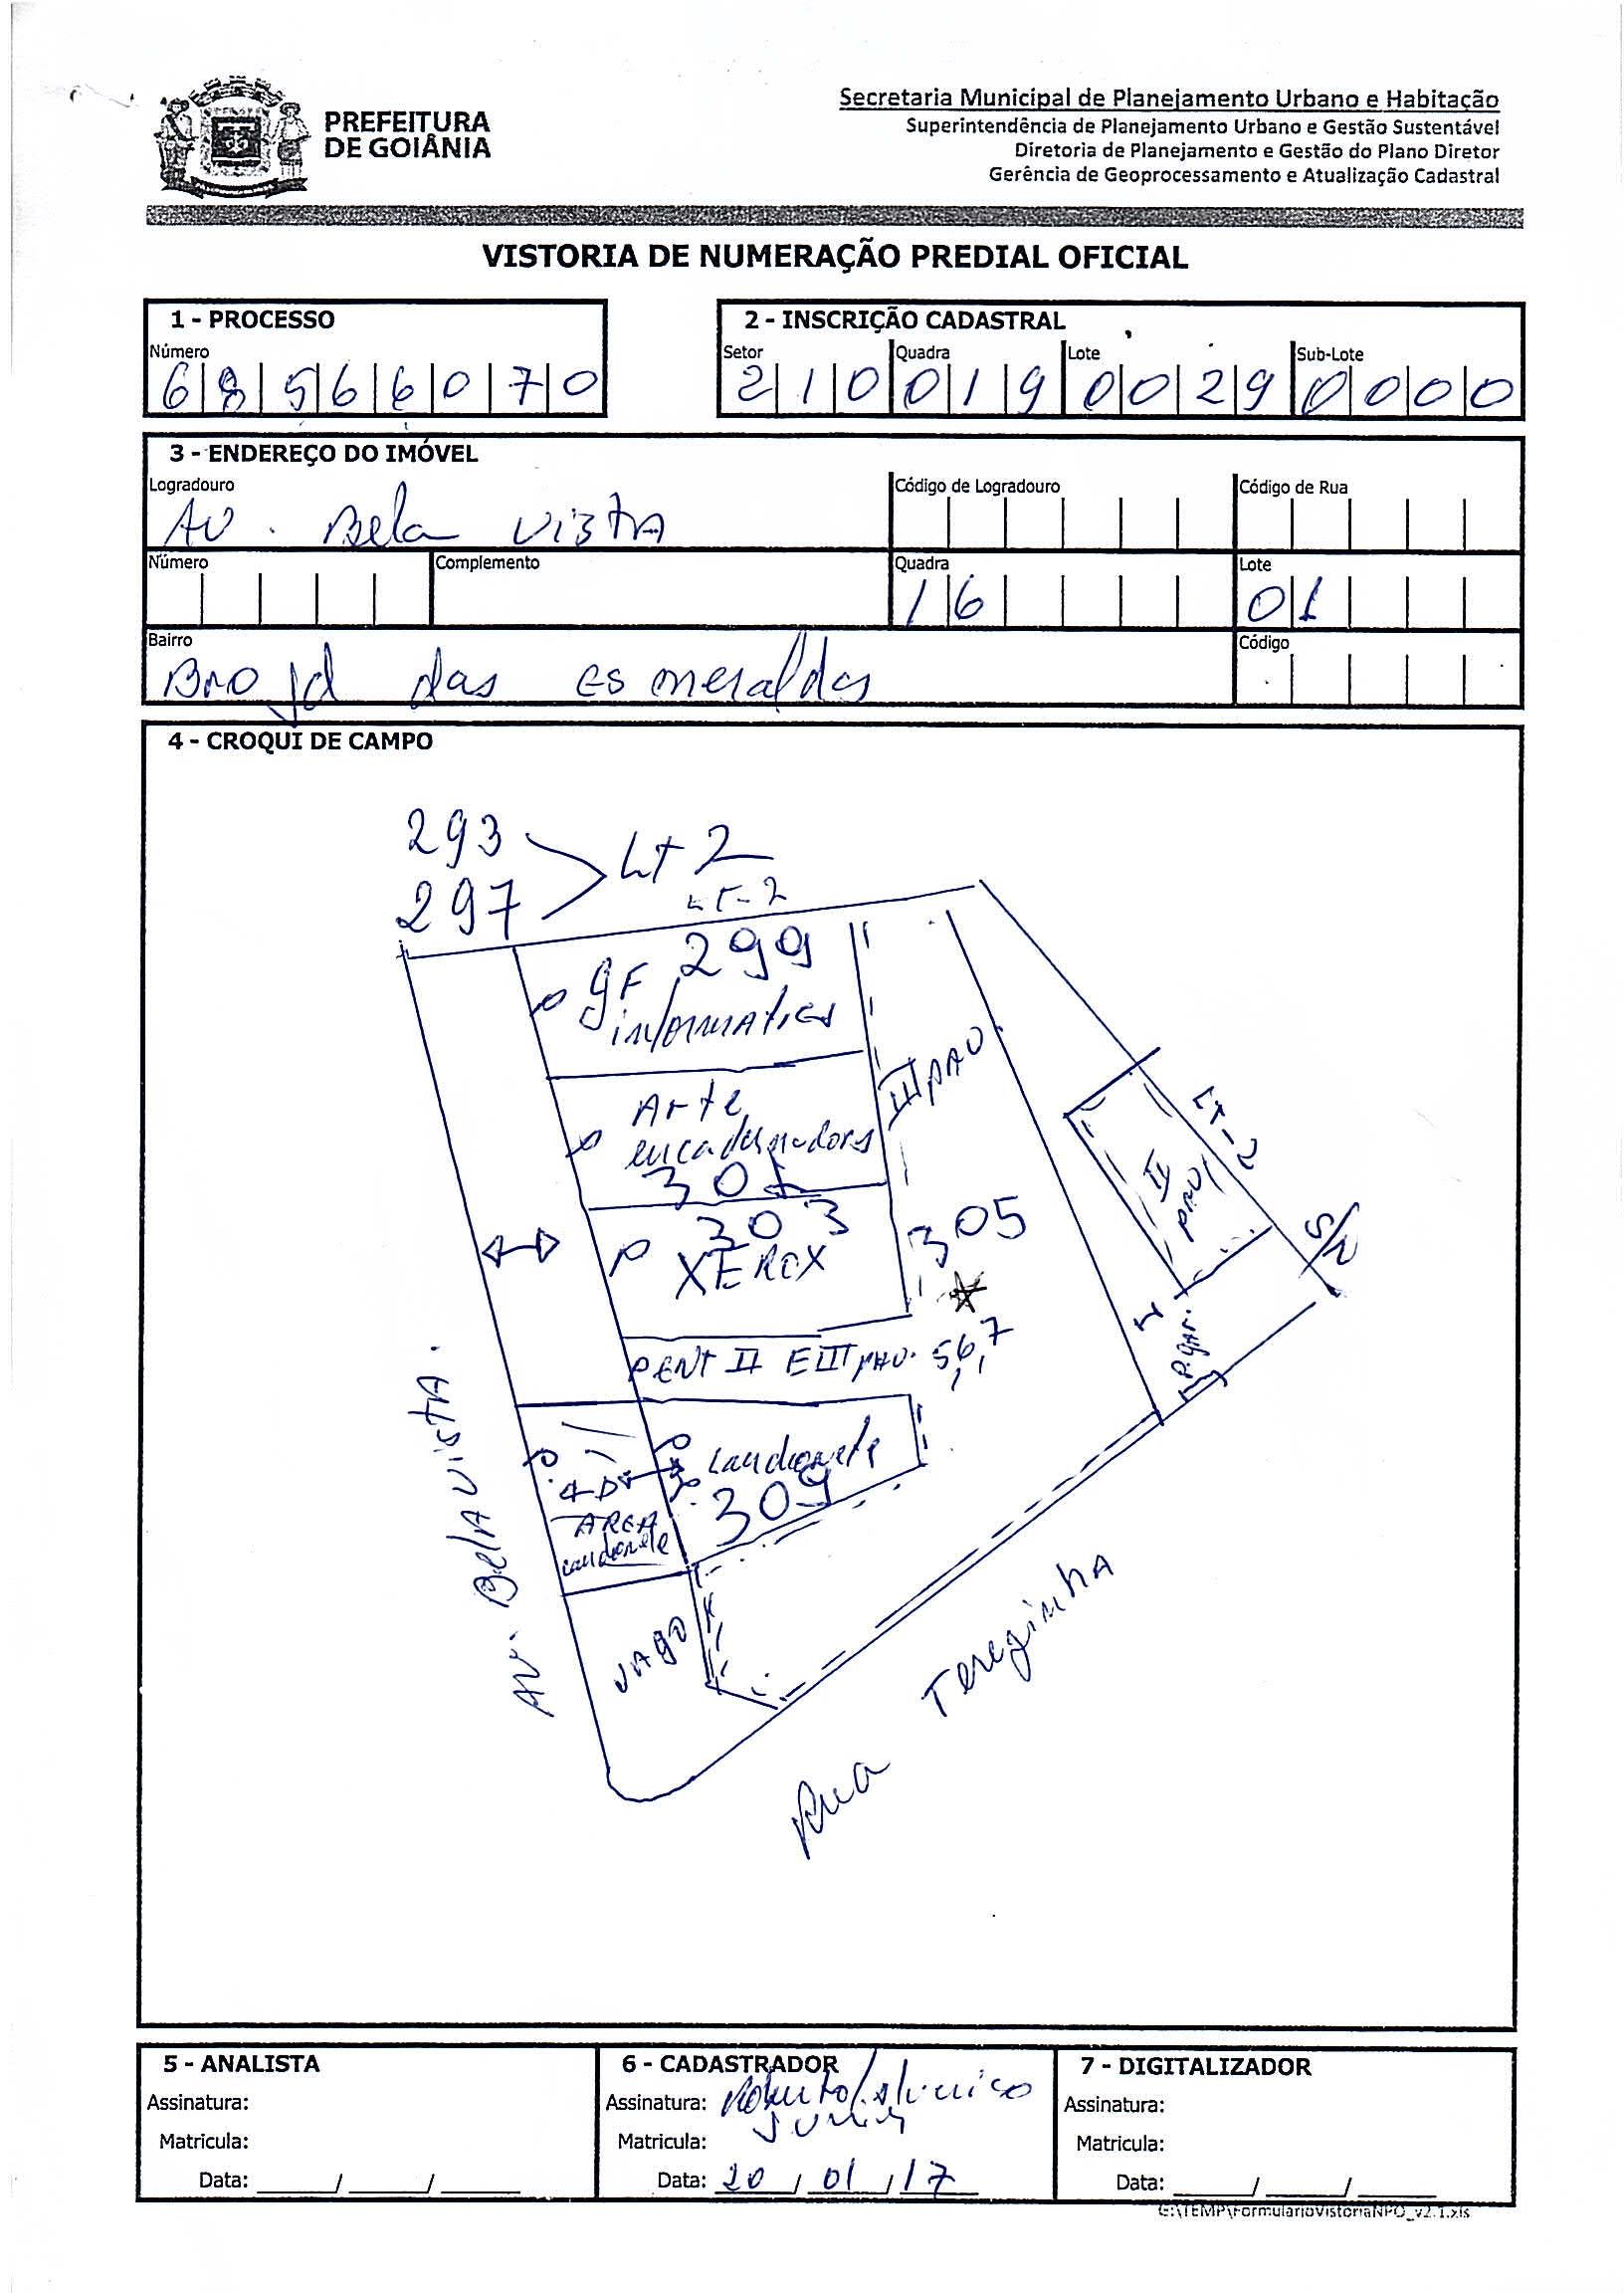 PREFEITURA
DE GOIÂNIA
Secretaria Municipal de Planejamento Urbano e Habitação
Superintendência de Planejamento Urbano e Gestão Sustentável
Diretoria de Planejamento e Gestão do Plano Diretor
Gerência de Geoprocessamento e Atualização Cadastral
VISTORIA DE NUMERAÇÃO PREDIAL OFICIAL
1 - PROCESSO
Número
68566070
2 - INSCRIÇÃO CADASTRAL
Setor Quadra Lote Sub-Lote
210 019 0029 0000
3 - ENDEREÇO DO IMÓVEL
Logradouro Código de Logradouro Código de Rua
AV. Bela VISTA
Número Complemento Quadra Lote
16 01
Bairro Código
BRO Jd das esmeraldas
4 - CROQUI DE CAMPO
293
297
Lt 2
LT-2
GF 299
informatica
Arte
encadernadora
301
III PAV.
303
XEROX
305
PENT II E III PAV. 5,6,7
Lanchonete
309
AREA
Lanchonete
VAGO
II
PAV
LT-2
S/N
P. gar.
AV. Bela VISTA.
Rua Terezinha
5 - ANALISTA
Assinatura:
Matricula:
Data: ____/____/____
6 - CADASTRADOR
Assinatura: Roberto
Junior
Matricula:
Data: 20/01/17
7 - DIGITALIZADOR
Assinatura:
Matricula:
Data: ____/____/____
G:\TEMP\FormularioVistoriaNPO_v2.1.xls